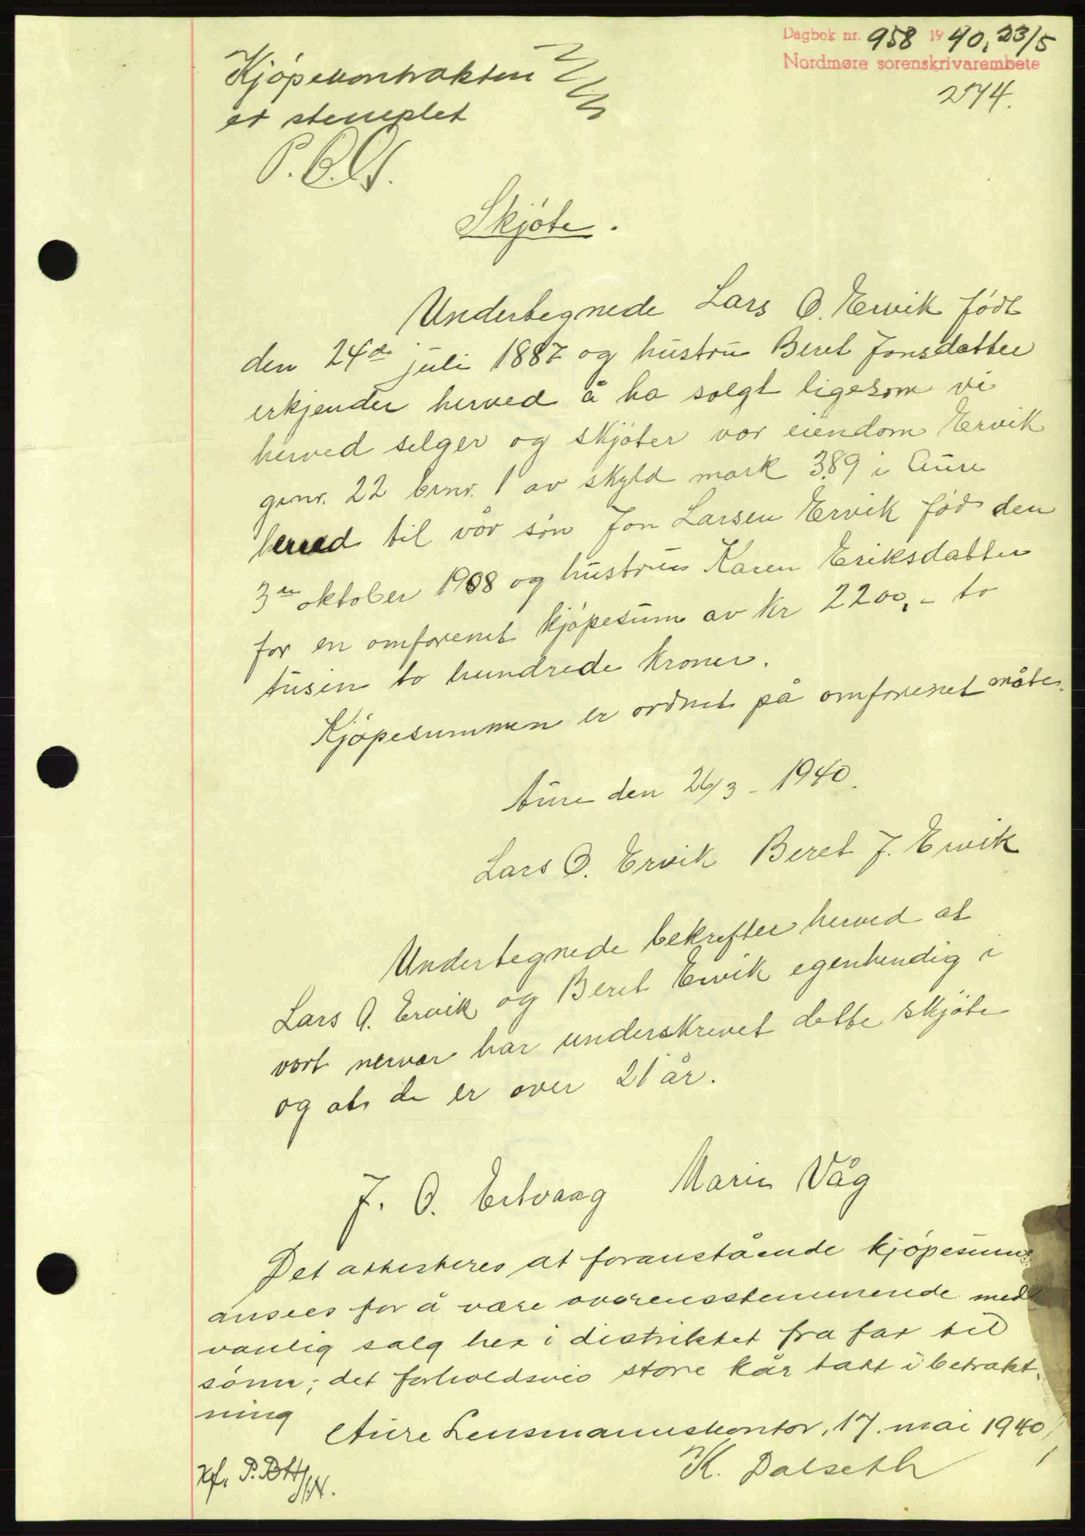 Dagbok nr. 958 1940, 23/5
Nordmøre sorenskrivarembete
Kjøpekontrakten
er stemplet
Skjøte.
Undertegnede Lars O. Ervik født
den 24de juli 1887 og hustru Beret Jonsdatter
erkjender herved å ha solgt ligesom vi
herved selger og skjøter vor eiendom Ervik
gnr. 22 brnr. 1 av skyld mark 3.89 i Aure
herred til vår søn Jon Larsen Ervik fød den
3en oktober 1908 og hustru Karen Eriksdatter
for en omforenet kjøpesum av kr 2200,- to
tusin to hundrede kroner.
Kjøpesummen er ordnet på omforenet måte.
Aure den 26/3 - 1940.
Lars O. Ervik Beret J. Ervik
Undertegnede bekrefter herved at
Lars O. Ervik og Beret Ervik egenhendig i
vort nervær har underskrevet dette skjøte
og at de er over 21 år.
J. O. Ertvaag Marie Våg
Det attesteres at foranstående kjøpesum
ansees for å være overensstemmende med
vanlig salg her i distriktet fra far til
sønn; det forholdsvis store kår tatt i betrakt-
ning
Aure Lensmannskontor, 17. mai 1940
K. Dalseth